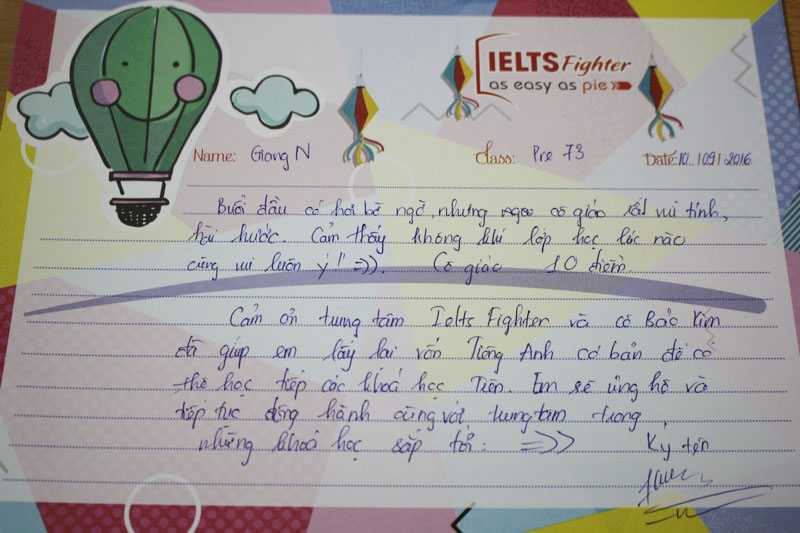 IELTS Fighter
as easy as pie
Name: Giang N
Class: Pre 73
Date: 10../09/2016
Buổi đầu có hơi bỡ ngỡ, nhưng cô giáo rất vui tính,
hài hước. Cảm thấy không khí lớp học lúc nào
cũng vui luôn ý!! =)). Cô giáo 10 điểm.
Cảm ơn trung tâm Ielts Fighter và cô Bảo Kim
đã giúp em lấy lại vốn Tiếng Anh cơ bản để có
thể học tiếp các khoá học Tiến. Em sẽ ủng hộ và
tiếp tục đồng hành cùng với trung tâm trong
những khoá học sắp tới. =>>
Ký tên